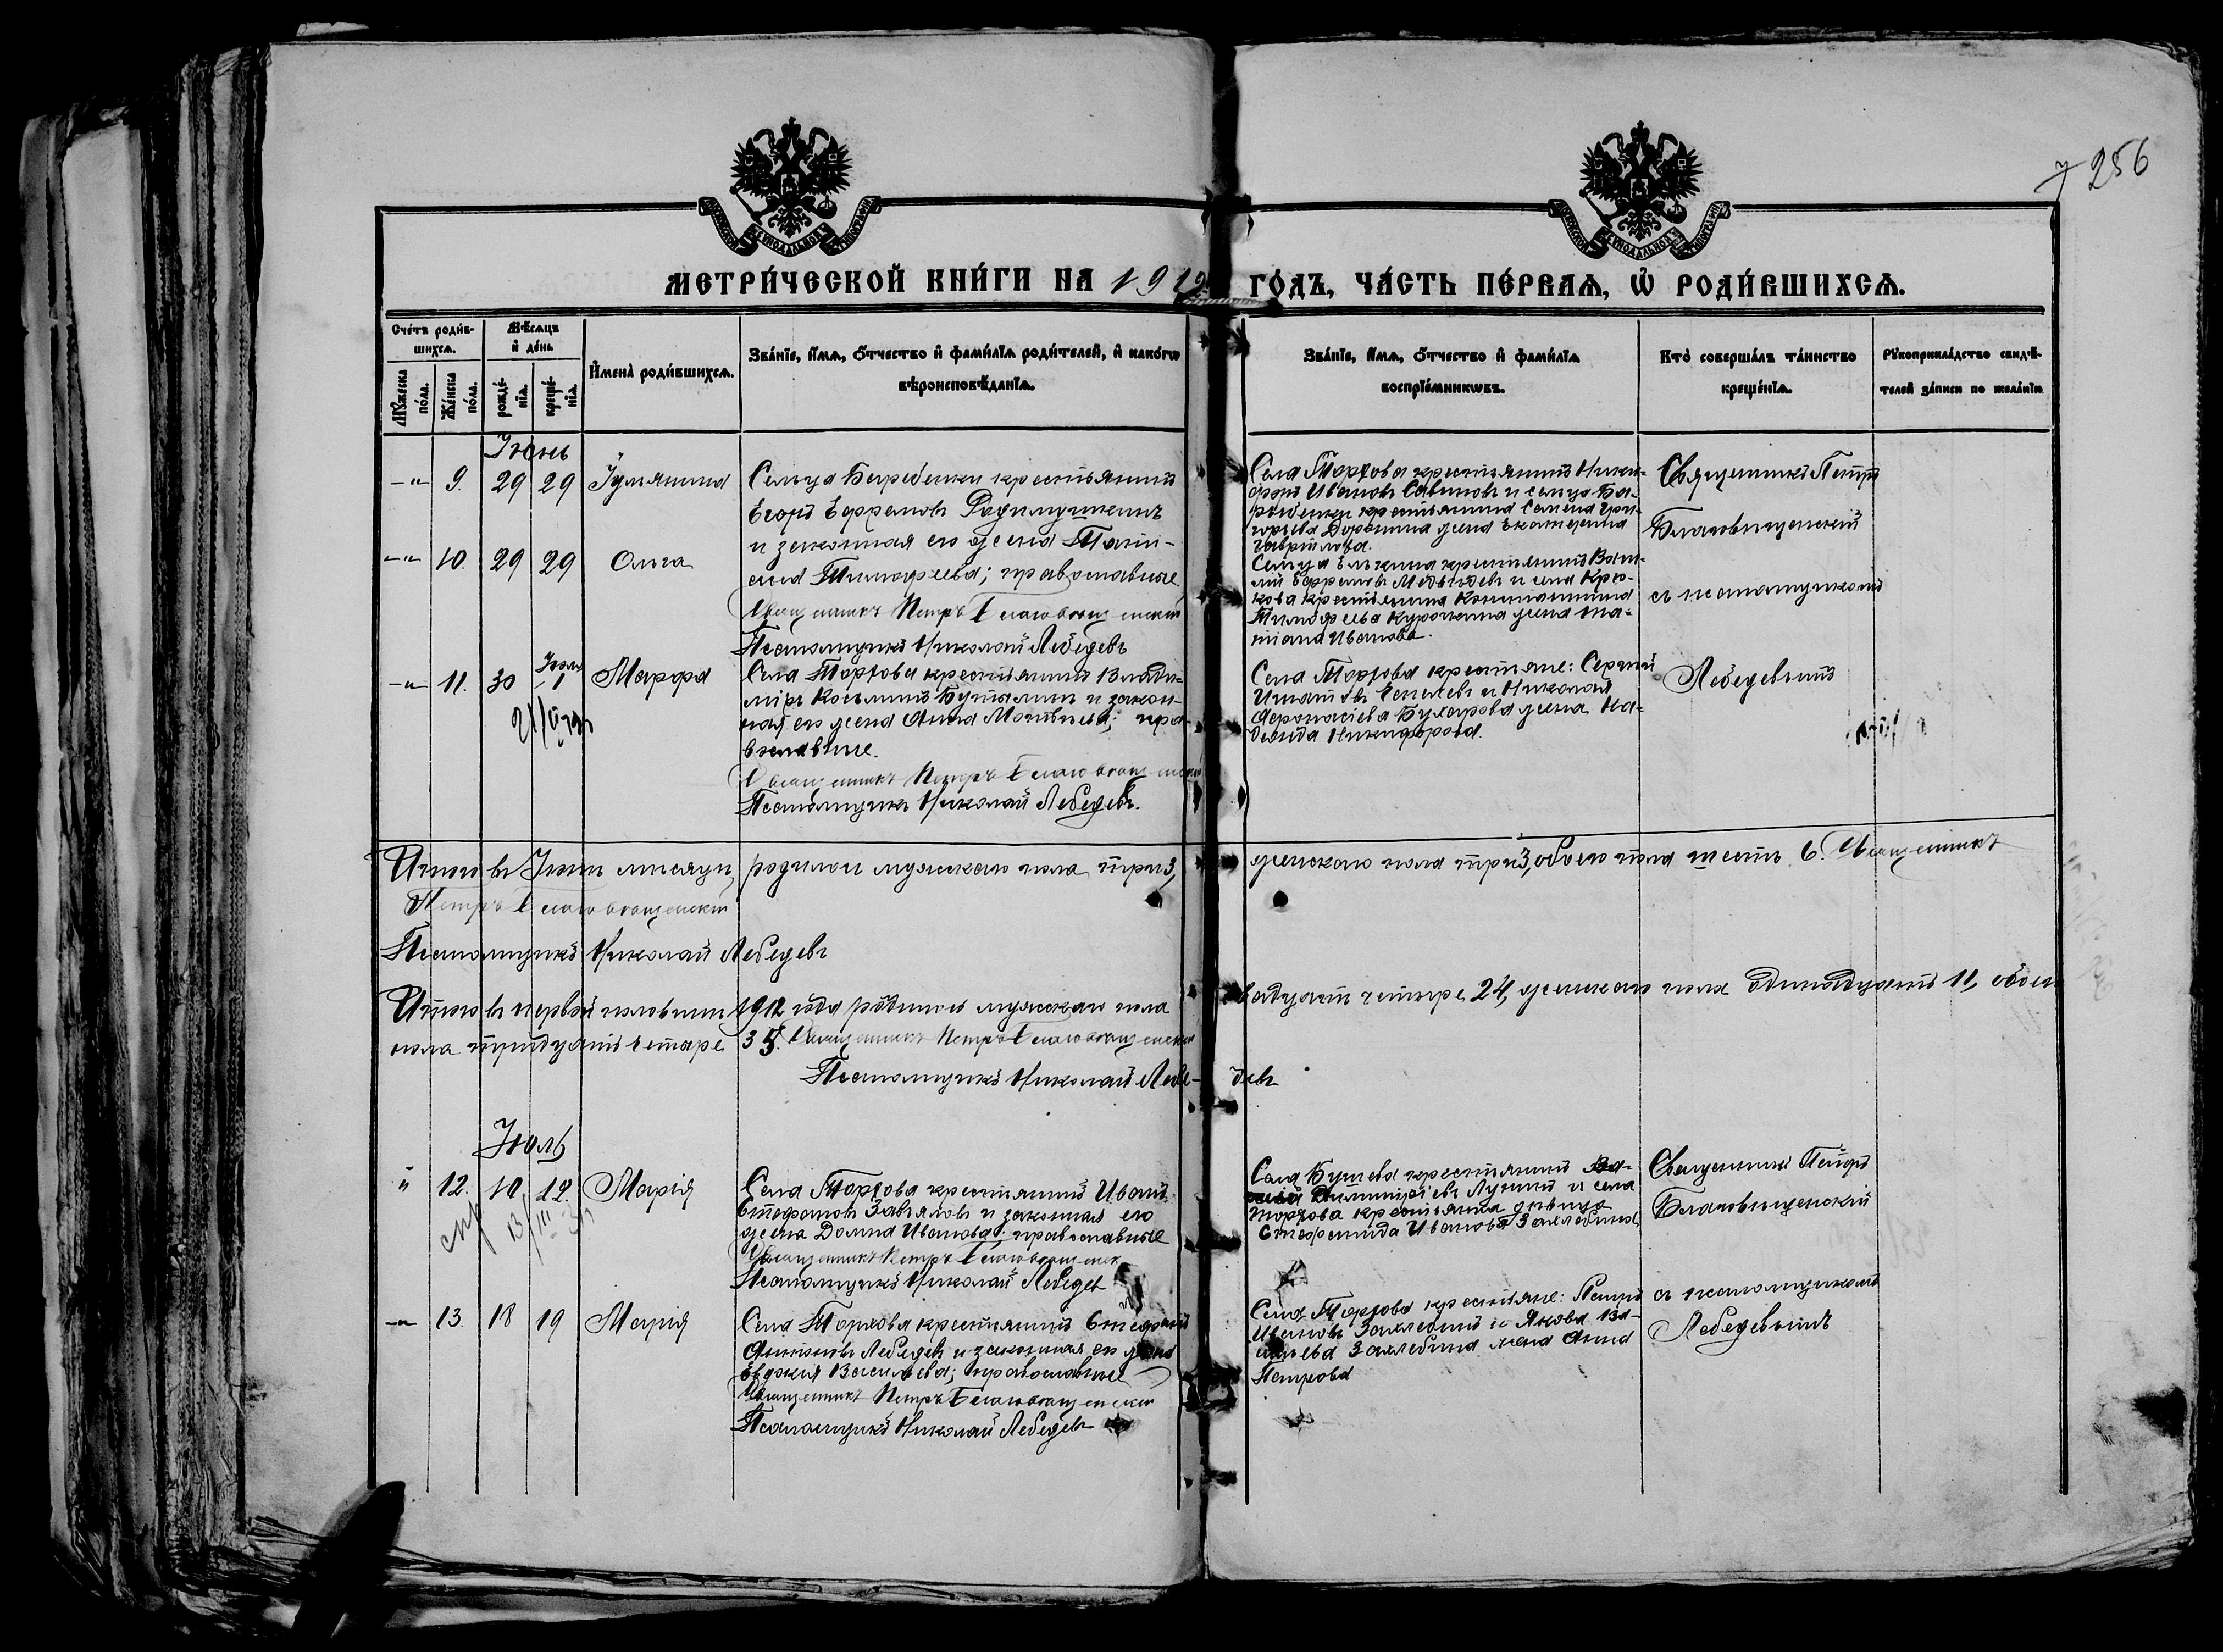 256
МЕТРИ́ЧЕСКОЙ КНИ́ГИ НА 1912 ГО́ДЪ, ЧА́СТЬ ПЕ́РВАЯ, Ѿ РОДИ́ВШИХСЯ.
Сче́тъ роди́вшихся.
Мѣ́сяцъ и де́нь
Мꙋ́жеска по́ла.
Же́нска по́ла.
рожде́нїя.
креще́нїя.
И҆мена̀ роди́вшихся.
Зва́нїе, и҆́мя, ѻ҆́тчество и҆ фами́лїя роди́телей, и҆ како́гѡ
вѣроисповѣ́данїя.
Зва́нїе, и҆́мя, ѻ҆́тчество и҆ фами́лїя
воспрїе́мникѡвъ.
Кто̀ соверша́лъ та́инство
креще́нїя.
Рꙋкоприкла́дство свидѣ́-
телей за́писи по жела́нїю
Іюнь
-"- 9. 29 29 Іуліанина
Сельца крестьянинъ
Егоръ Ефремовъ Родимушкинъ
и законная его жена Тати-
ана Тимофеева; православные.
Священникъ Петръ Благовещенскій
Псаломщикъ Николай Лебедевъ
Села Торхова крестьянинъ Ники-
форъ Ивановъ Савиновъ и сельца
крестьянина Семена Гри-
горьева Доронина жена Екатерина
Гаврилова.
Священникъ Петръ
Благовещенскій
-"- 10. 29 29 Ольга
Сельца Елькина крестьянинъ Васи-
лій Ефремовъ Медведевъ и села Крю-
кова крестьянина Константина
Тимофеева жена Та-
тіана Иванова.
съ псаломщикомъ
-"- 11. 30 Іюль 1 Марфа
Села Торхова крестьянинъ Влади-
міръ Косьминъ Бутылинъ и закон-
ная его жена Анна Матвеева; пра-
вославные.
Священникъ Петръ Благовещенскій
Псаломщикъ Николай Лебедевъ.
Села Торхова крестьяне: Сергей
Игнатовъ и Николая
Афонасіева Бухарова жена На-
дежда Никифорова.
Лебедевымъ
Итого въ Іюне месяце родилось мужескаго пола три 3, женскаго пола три 3, обоего пола шесть 6. Священникъ
Петръ Благовещенскій
Псаломщикъ Николай Лебедевъ
Итого въ первой половине 1912 года родилось мужескаго пола двадцать четыре 24, женскаго пола одинадцать 11, обоего
пола тридцать четыре 35. Священникъ Петръ Благовещенскій
Псаломщикъ Николай Лебе-девъ
Іюль
" 12. 10 12. Марія
Села Торхова крестьянинъ Иванъ
Стефановъ Завьяловъ и законная его
жена Домна Иванова; православные
Священникъ Петръ Благовещенск
Псаломщикъ Николай Лебедев
Села крестьянинъ
Димитріевъ Лунинъ и села
Торхова крестьянка девица
Стефанида Иванова Захлебина
Священникъ Петръ
Благовещенскій
-"- 13. 18 19 Марія
Села Торхова крестьянинъ Стефанъ
Антоновъ Лебедев и законная его жена
Евдокія Васильева; православные
Священникъ Петръ Благовещенскій
Псаломщикъ Николай Лебедевъ
Села Торхова крестьяне: Петръ
Ивановъ Захлебинъ и Якова Ва-
сильева Захлебина жена Анна
Петрова
съ псаломщикомъ
Лебедевымъ